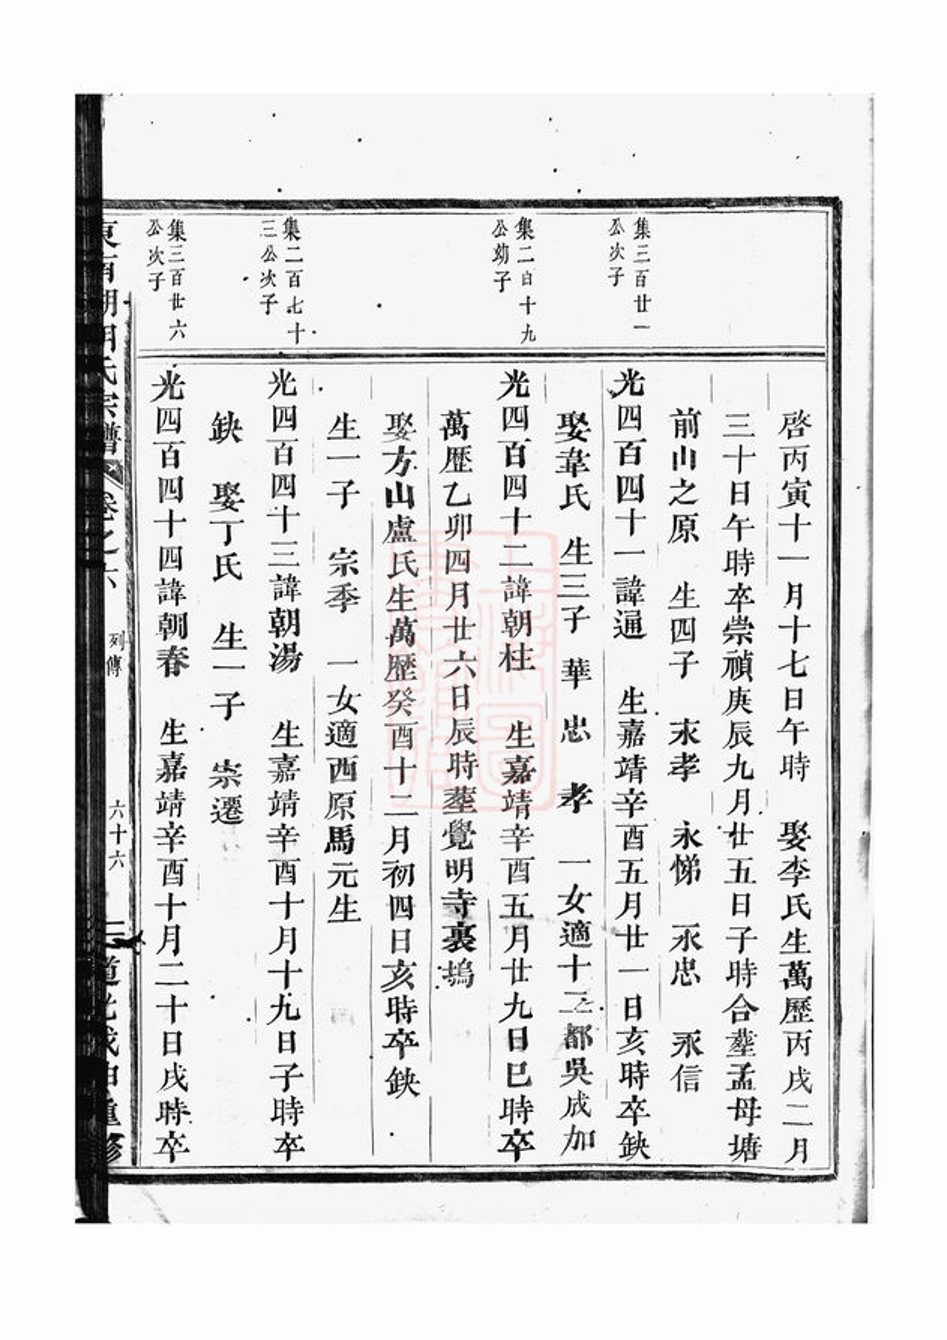 啓丙寅十一月十七日午時　娶李氏生萬歷丙戌二月
三十日午時卒崇禎庚辰九月廿五日子時合塟孟母塘
前山之原　生四子　永孝　永悌　永忠　永信
集三百廿一
公次子
光四百四十一諱通　生嘉靖辛酉五月廿一日亥時卒缺
娶韋氏　生三子　華　忠　孝　一女適十三都吳成加
集二百十九
公幼子
光四百四十二諱朝柱　生嘉靖辛酉五月廿九日巳時卒
萬歷乙卯四月廿六日辰時塟覺明寺裏塢
娶方山盧氏生萬歷癸酉十二月初四日亥時卒缺
生一子　宗季　一女適西原馬元生
集二百七十
三公次子
光四百四十三諱朝湯　生嘉靖辛酉十月十九日子時卒
缺　娶丁氏　生一子　崇遷
集三百廿六
公次子
光四百四十四諱朝春　生嘉靖辛酉十月二十日戌時卒
氏宗譜　卷之六　列傳　六十六　道光戊申重修